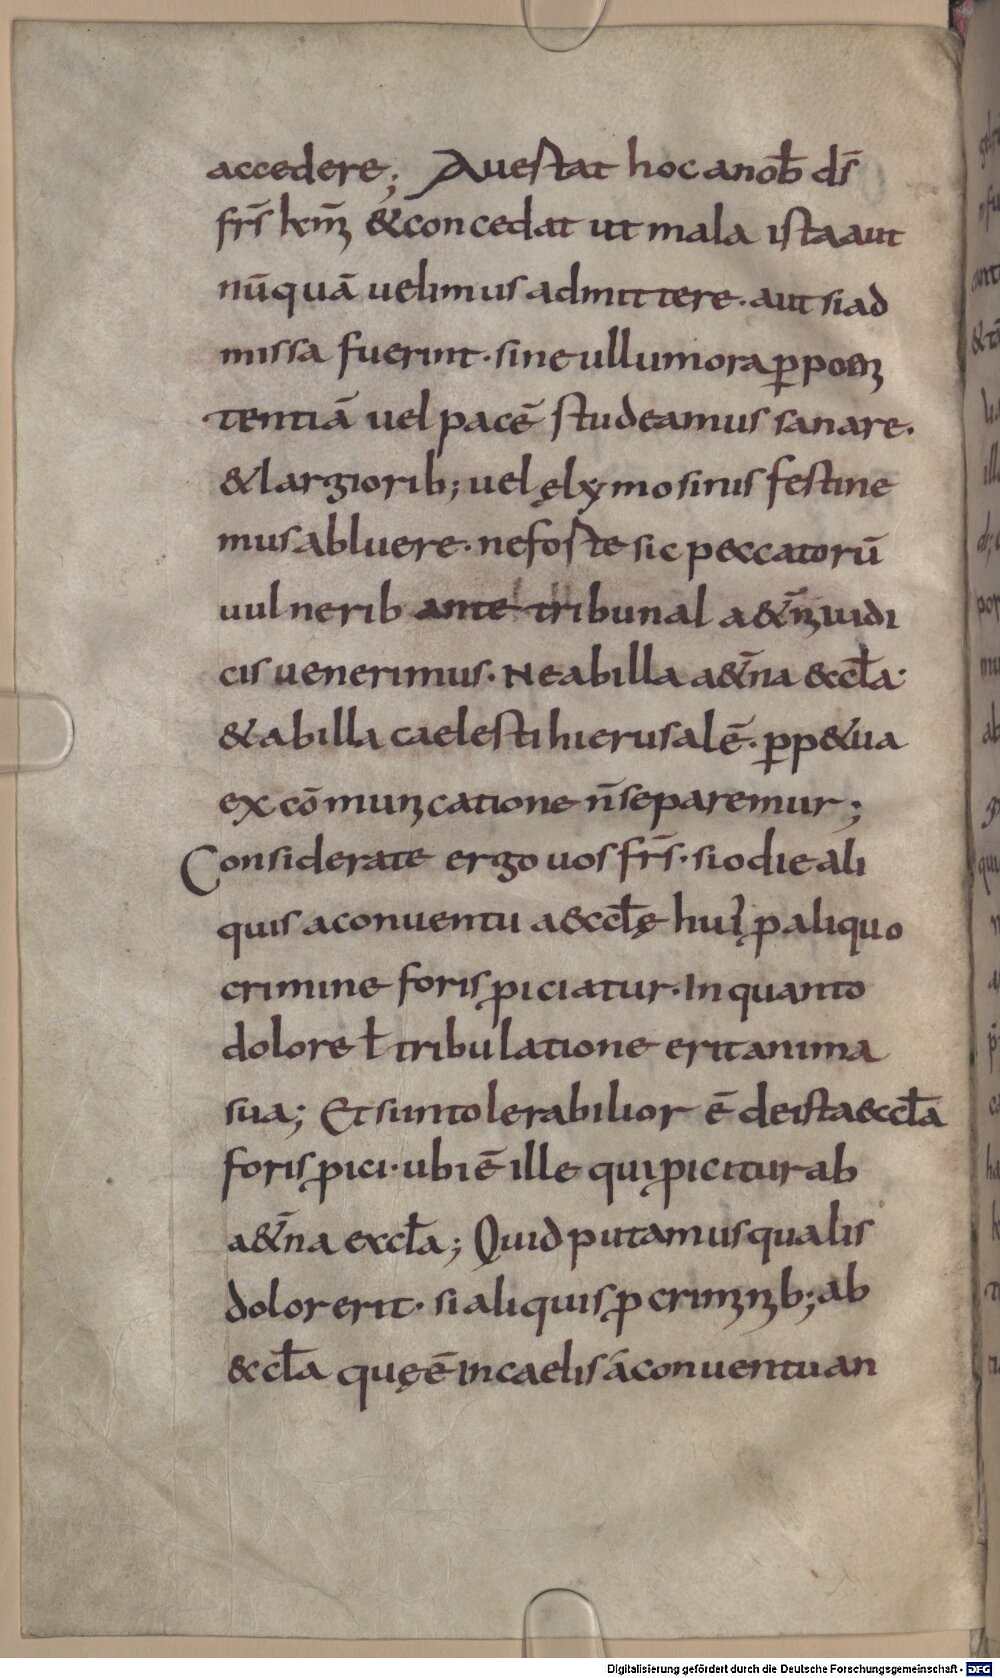 accedere; Auestat hoc anob̄ ds̄
frs̄ km̄ &concedat ut mala ista aut
nūquā uelimus admittere. aut si ad
missa fuerint. sine ullu mora p̱ poeni
tentiā uel pacē studeamus sanare.
& largiorib; uel ęlymosinis festine
mus abluere. ne foste sic peccatorū
uulnerib ante tribunal a&n̄i iudi
cis uenerimus. Ne ab illa a&n̄a &ccl̄a.
& ab illa caelesti hierusalē. p̱p&ua
excōmunicatione n̄ separemur;
Considerate ergo uos frs̄. si odie ali
quis a conuentu a&ccl̄ę hui' p̱ aliquo
crimine foris piciatur. In quanto
dolore ł tribulatione erit anima
sua; Et si intolerabilior ē de ista &ccl̄a
foris pici. ubi ē ille qui picitur ab
a&n̄a exccl̄a; Quid putamus qualis
dolor erit. si aliquis p̱ criminib; ab
&ccl̄a quę ē in caelis á conuentu an
Digitalisierung gefördert durch die Deutsche Forschungsgemeinschaft - DFG